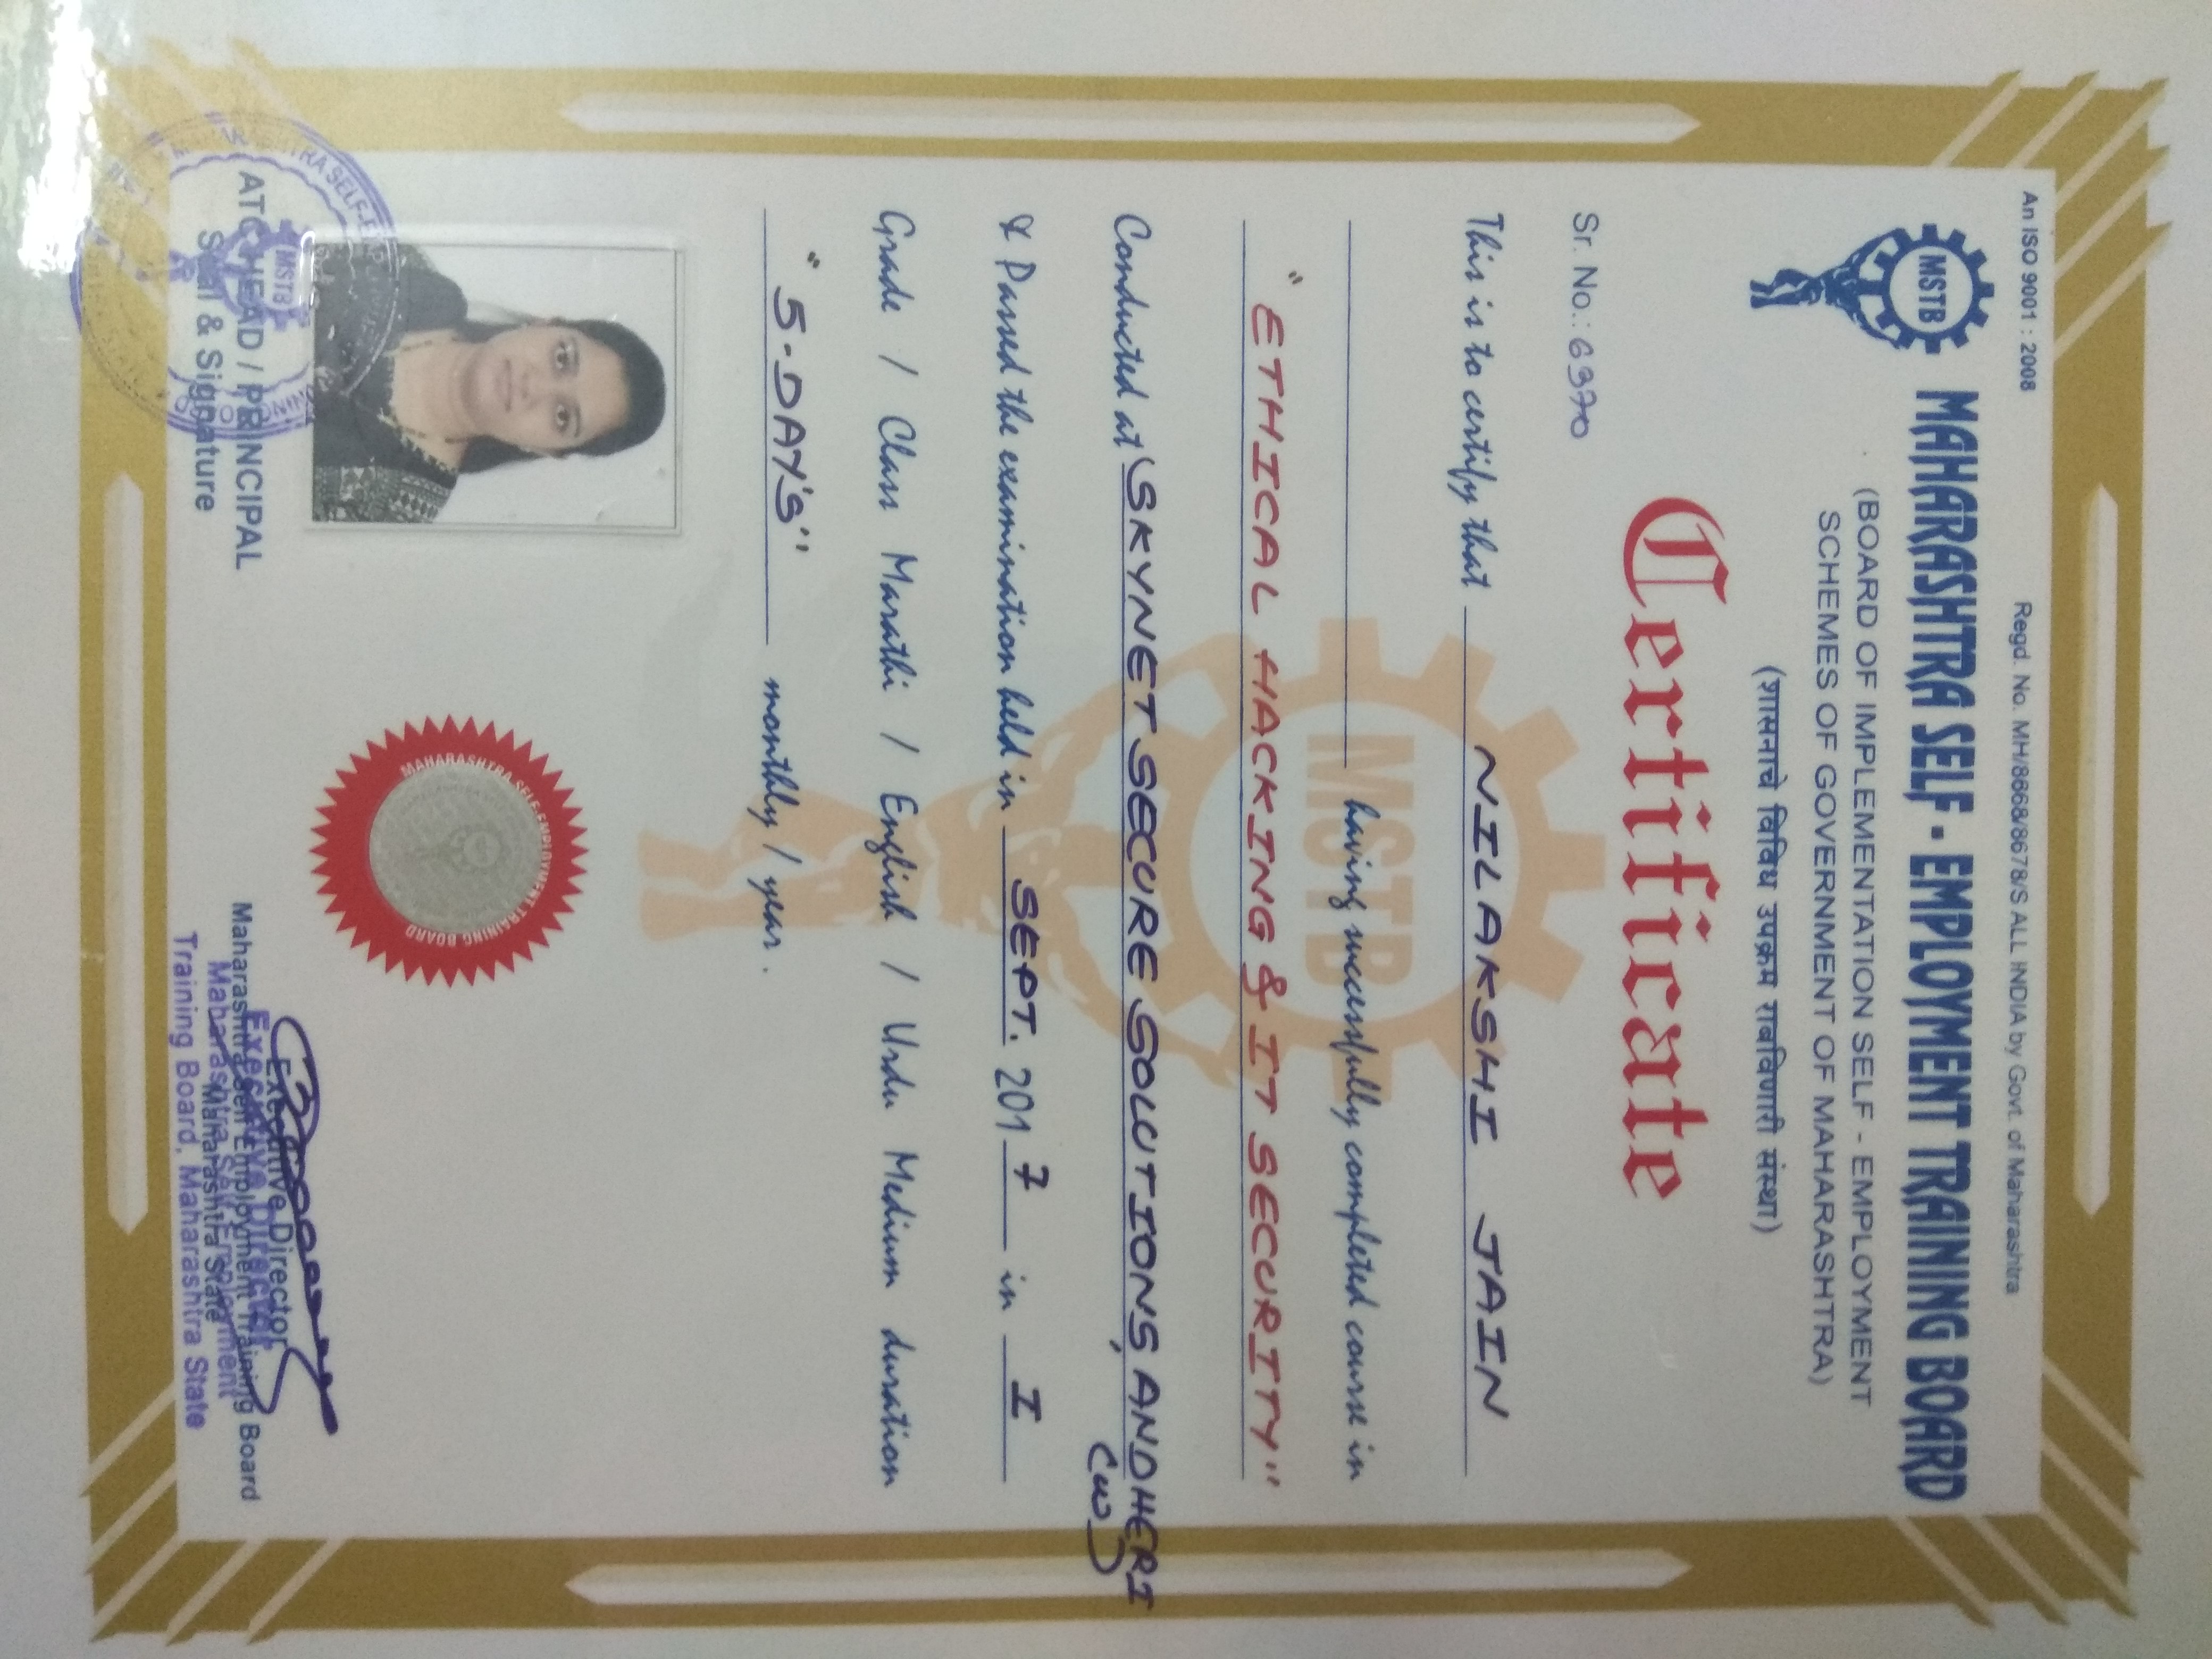 An ISO 9001 : 2008
Regd. No. MH/8668/8678/S ALL INDIA by Govt. of Maharashtra
MSTB
MAHARASHTRA SELF - EMPLOYMENT TRAINING BOARD
(BOARD OF IMPLEMENTATION SELF - EMPLOYMENT
SCHEMES OF GOVERNMENT OF MAHARASHTRA)
(शासनाचे विविध उपक्रम राबविणारी संस्था)
Certificate
Sr. No.: 6370
This is to certify that NILAKSHI JAIN
MSTB
having successfully completed course in
"ETHICAL HACKING & IT SECURITY"
Conducted at SKYNET SECURE SOLUTIONS, ANDHERI
(W)
& Passed the examination held in SEPT. 2017 in I
Grade / Class Marathi / English / Urdu Medium duration
"5-DAY'S" monthly / year.
MAHARASHTRA SELF-EMPLOYMENT TRAINING BOARD
MSTB
ATC HEAD / PRINCIPAL
Seal & Signature
Executive Director
Maharashtra Self Employment Training Board
Maharashtra State
Executive Director
Maharashtra Self-Employment
Training Board, Maharashtra State